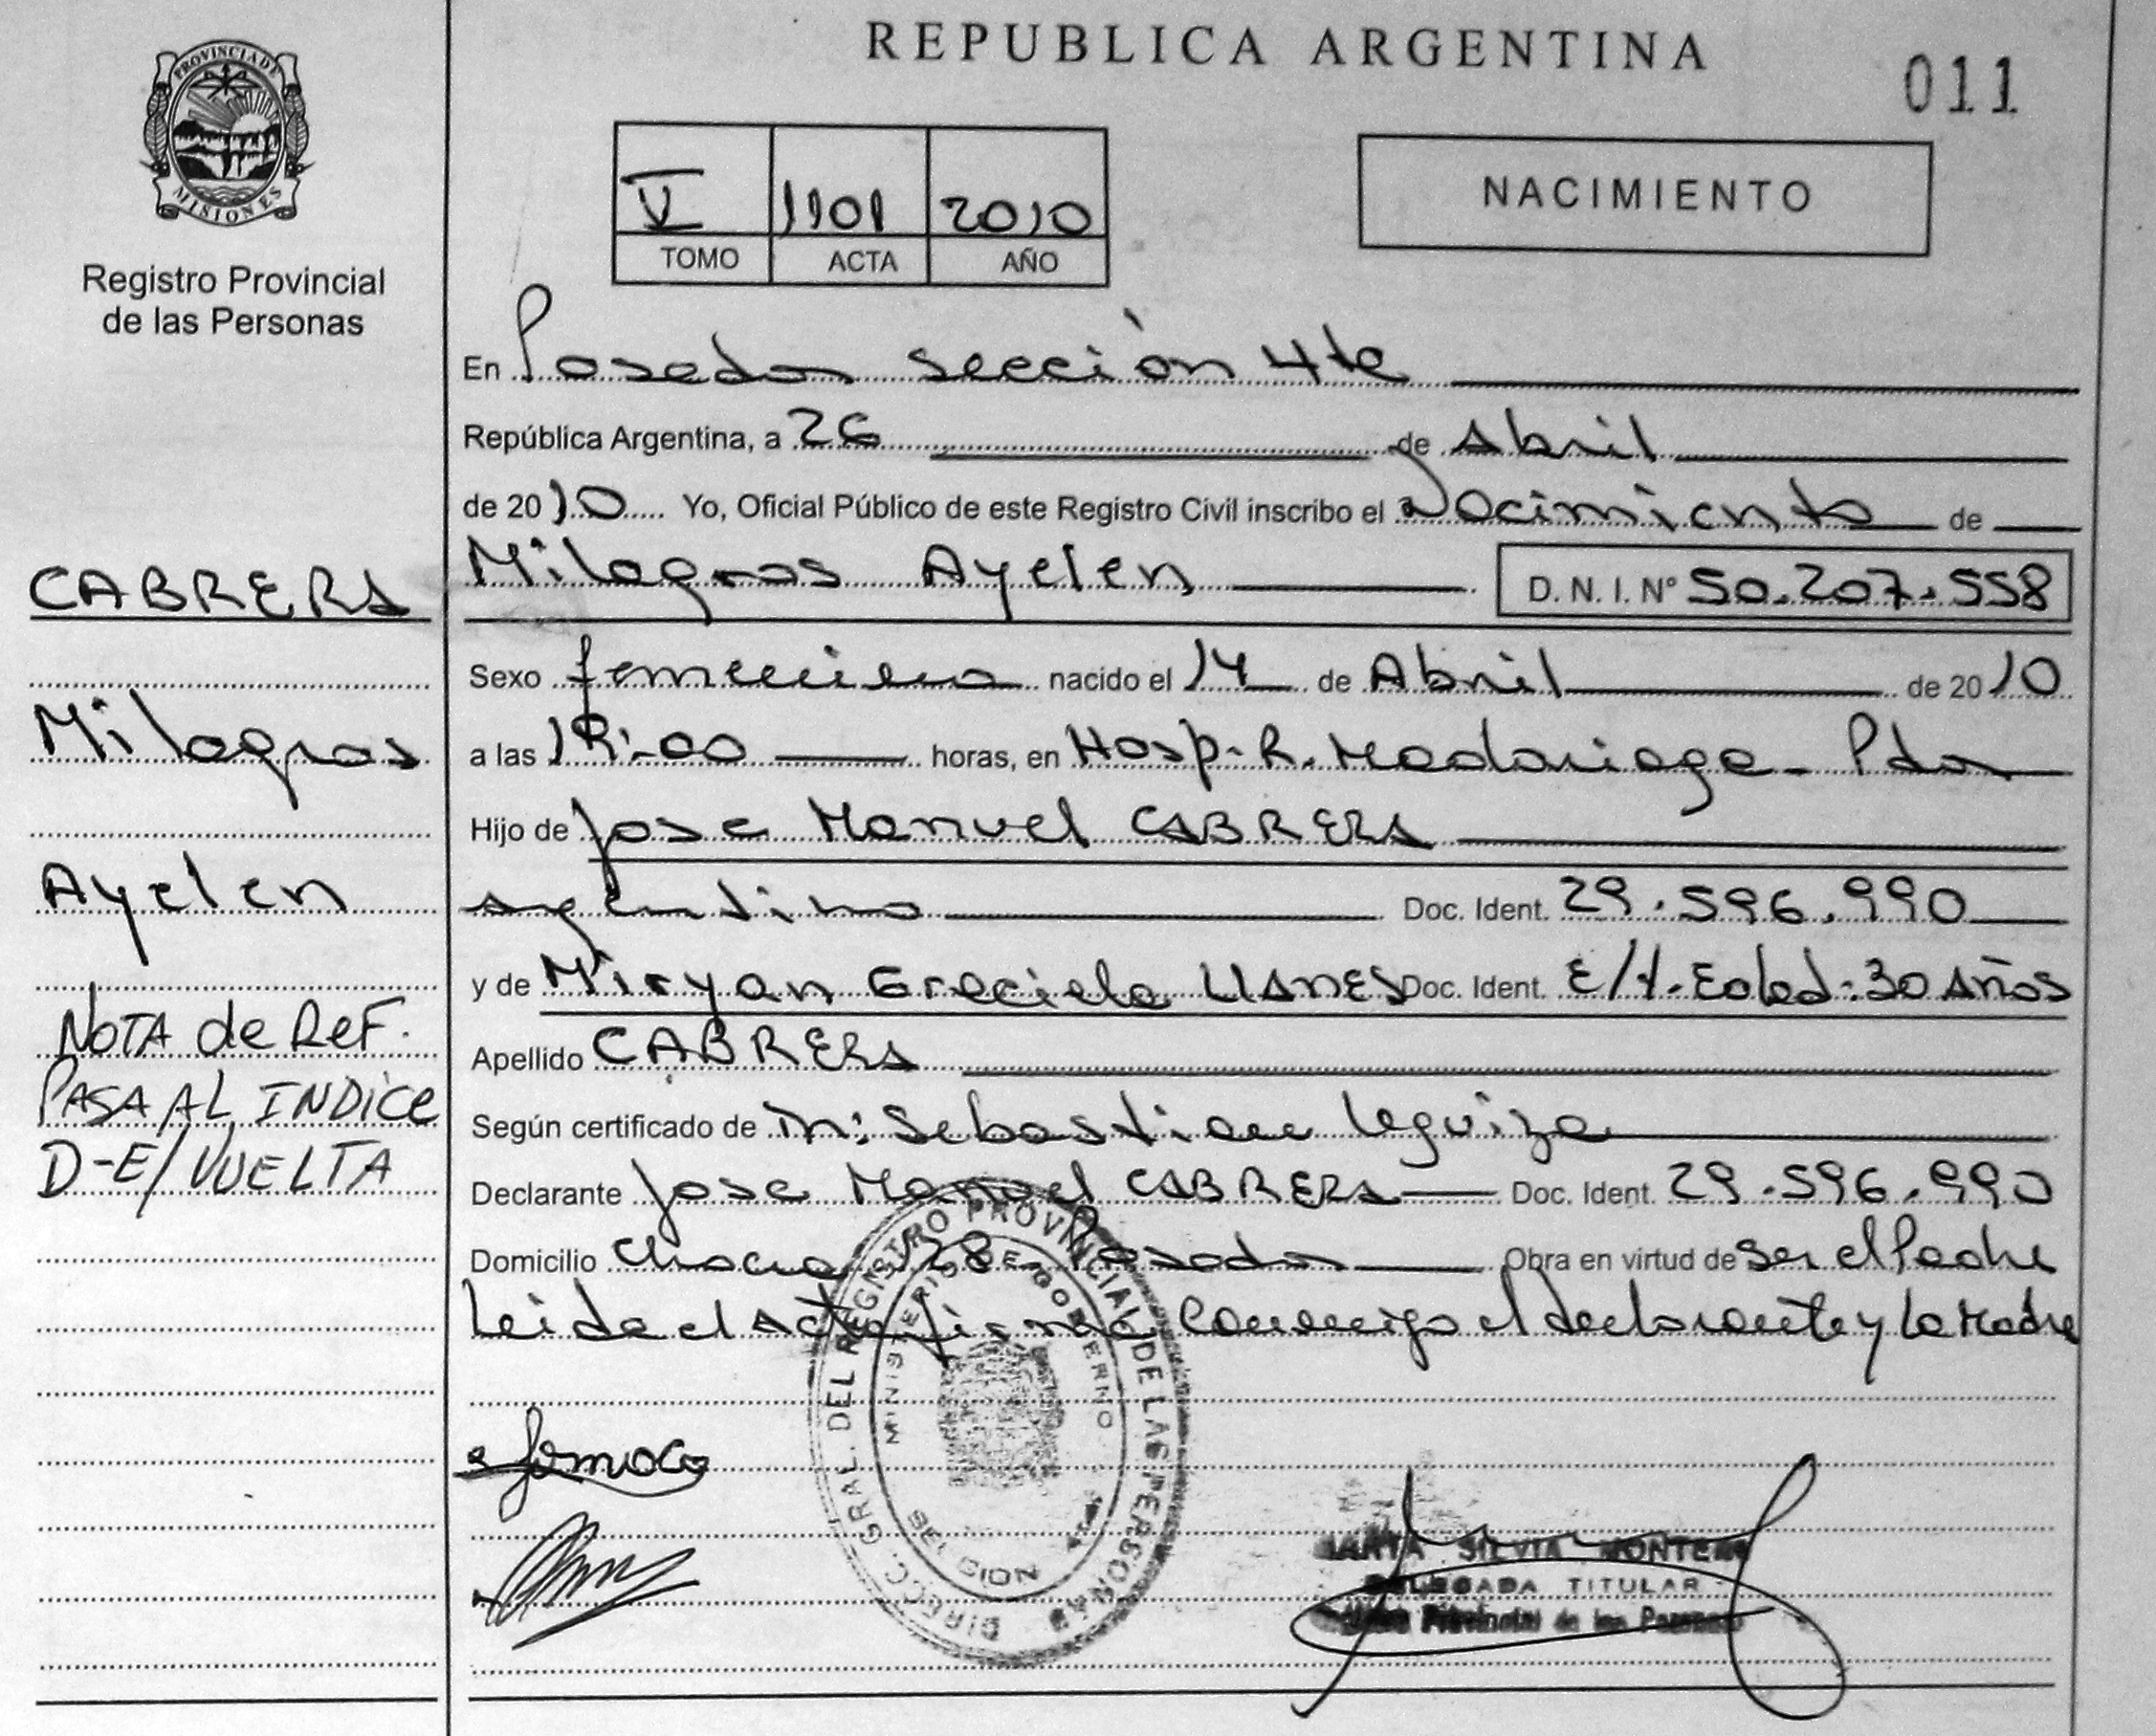 REPUBLICA ARGENTINA
011
PROVINCIA DE
MISIONES
Registro Provincial
de las Personas
V 1101 2010
TOMO ACTA AÑO
NACIMIENTO
En Posadas sección 4ta
República Argentina, a 26 de Abril
de 2010 Yo, Oficial Público de este Registro Civil inscribo el Nacimiento de
Milagros Ayelen D. N. I. Nº 50.207.558
Sexo femenino nacido el 14 de Abril de 2010
a las 19:00 horas, en Hosp. R. Madariaga - Pdas
Hijo de Jose Manuel CABRERA
argentino Doc. Ident. 29.596.990
y de Miryan Graciela Doc. Ident. Edad: 30 Años
Apellido CABRERA
Según certificado de Sebastian
Declarante Jose Manuel CABRERA Doc. Ident. 29.596.990
Domicilio Chacra 128 Posadas Obra en virtud de ser el Padre
Leida el Acta firma conmigo el declarante y la Madre
CABRERA
Milagros
Ayelen
NOTA de REF.
PASA AL INDICE
D-E/VUELTA
DIRECC. GRAL. DEL REGISTRO PROVINCIAL DE LAS PERSONAS
MINISTERIO DE GOBIERNO
SILVIA
DELEGADA TITULAR
Provincial de las Personas